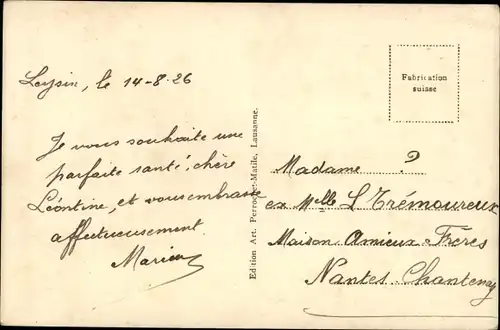 Leysin, le 14-8-26
Je vous souhaite une
parfaite santé, chère
Léontine, et vous embrasse
affectueusement.
Marica
Edition Art. Perrochet-Matile, Lausanne.
Fabrication
suisse
Madame ?
ex Melle L Trémoureux
Maison Amieux-Frères
Nantes-Chantenay